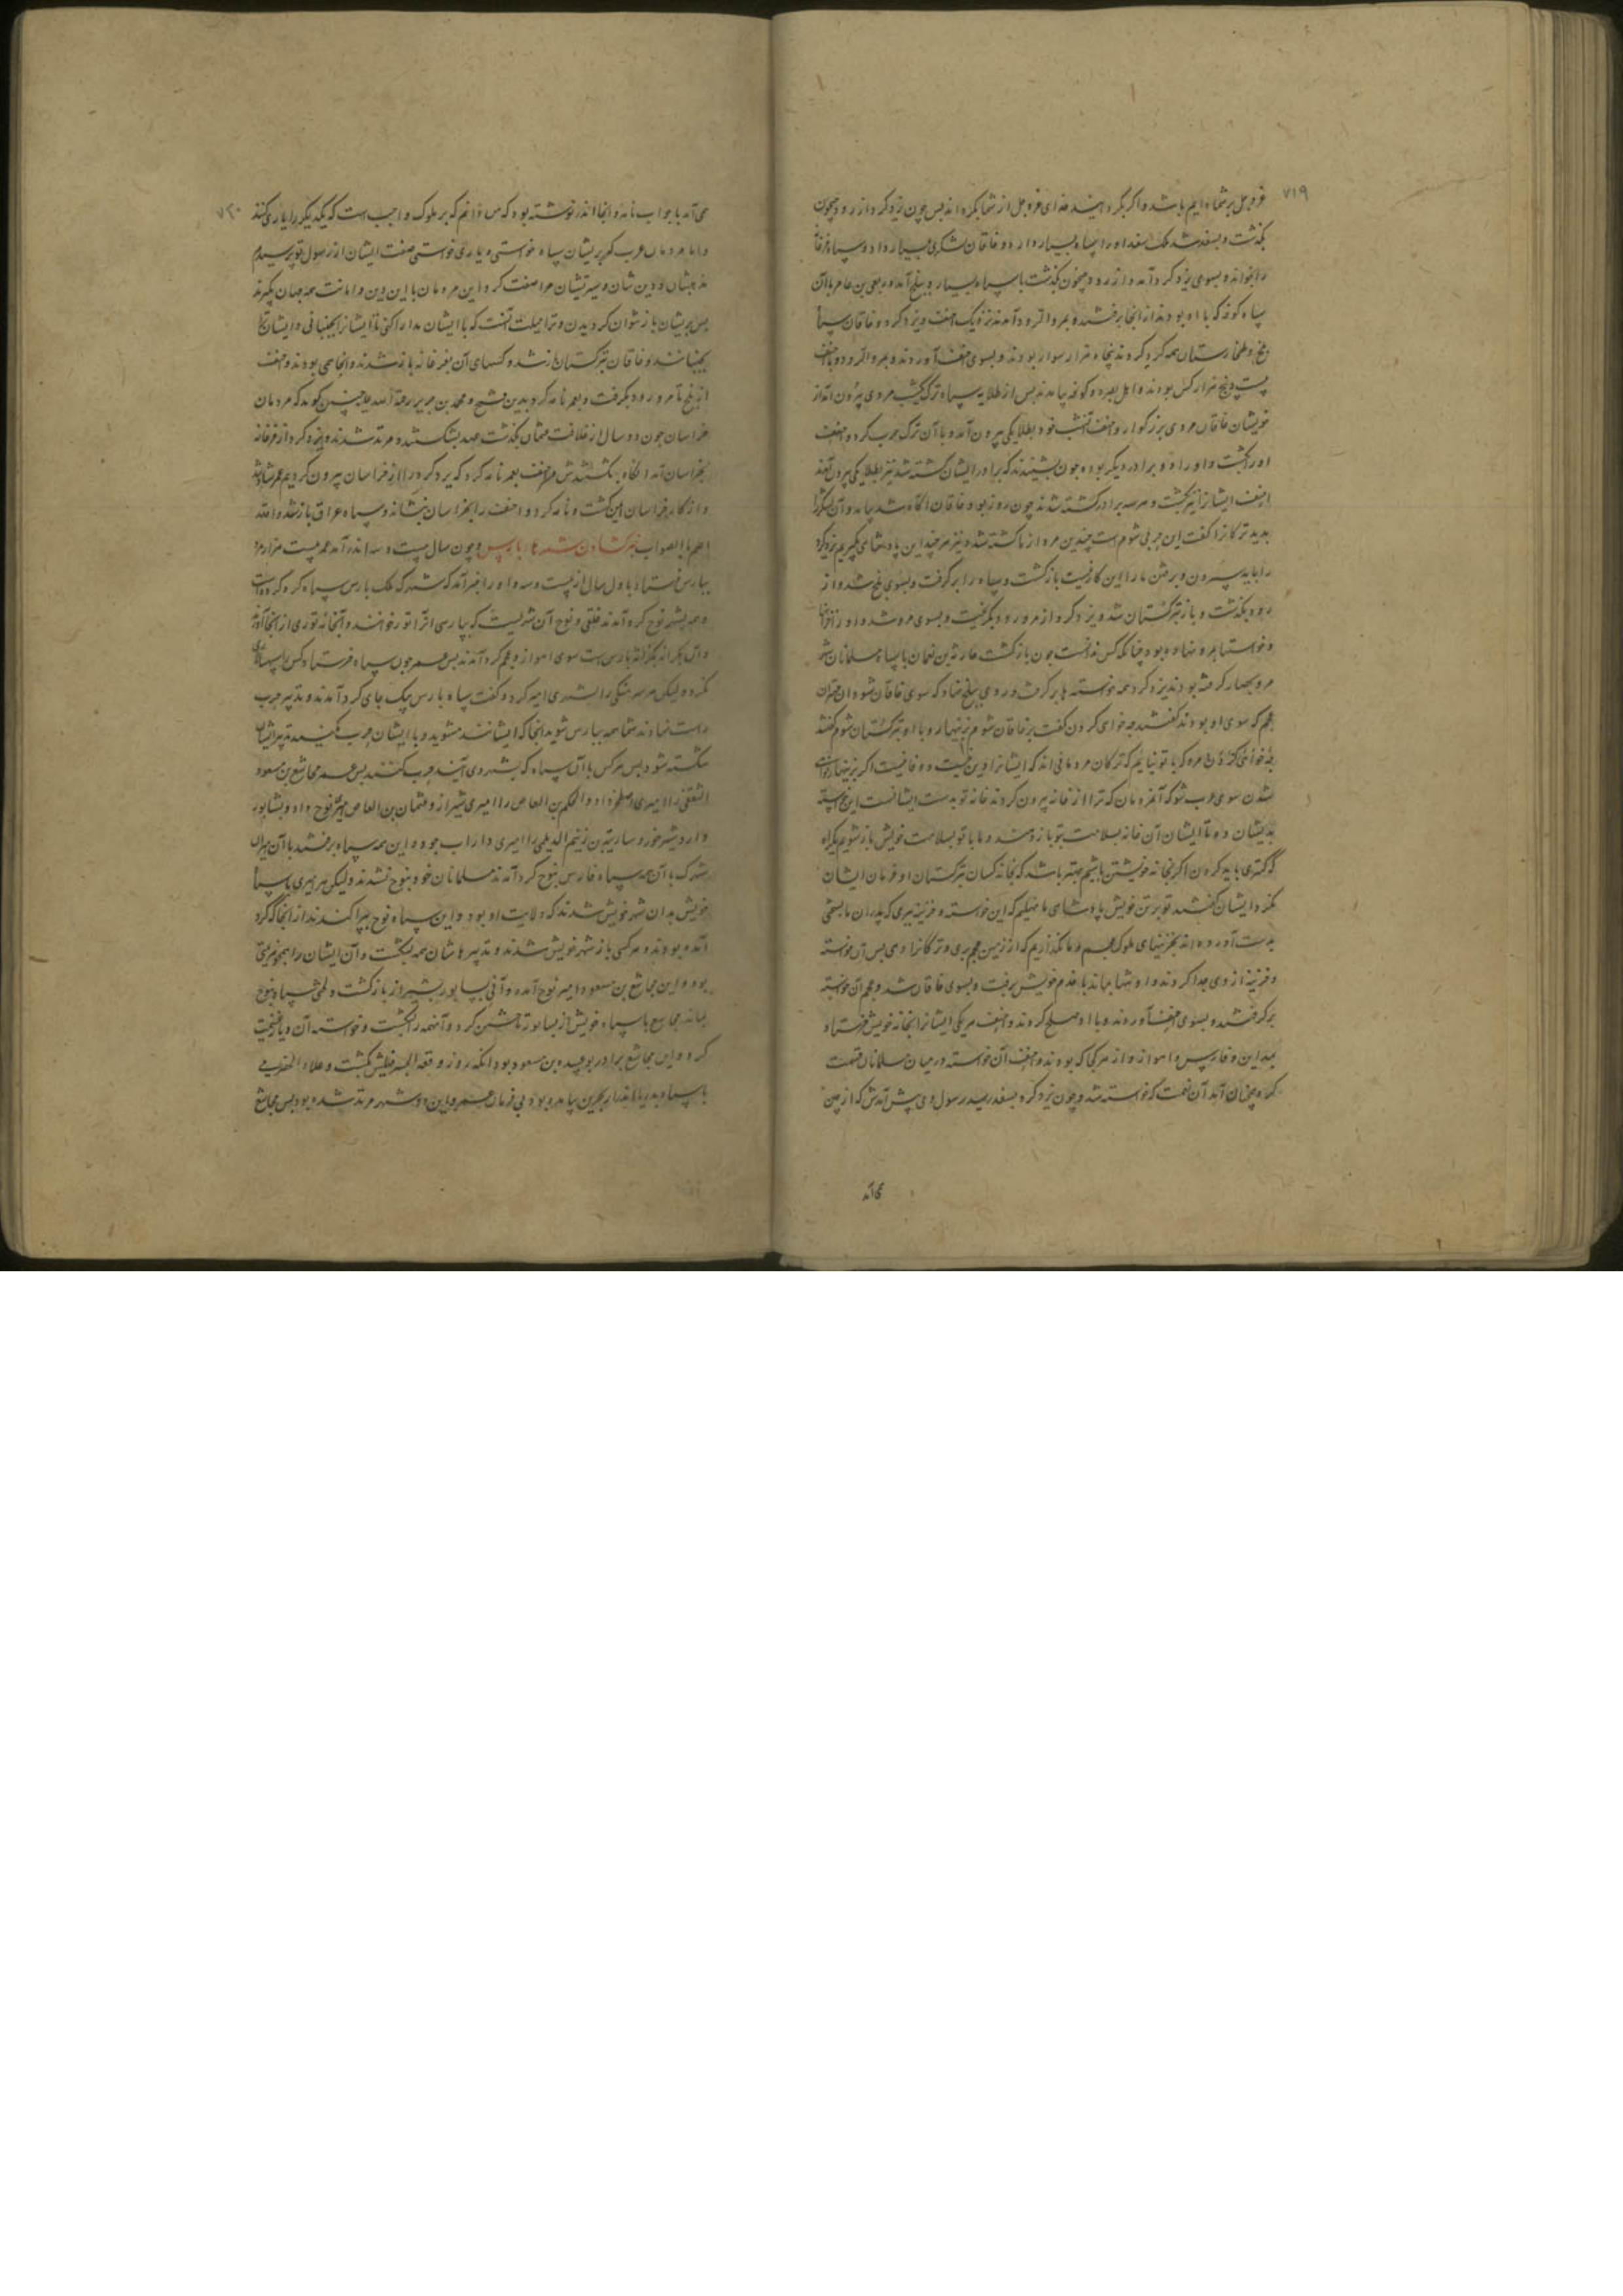 ۷۱۹
عز و جل بر شما دایم باشد و اکر بکردانید خدای عز و جل از شما بکرداند پس چون یزدکرد از رود جیحون
بکذشت و بسغد شد ملک سغد او را سپاه بسیار داد و خاقان لشکری بسیار داد و سپاه فرغانه
را بخواند و بسوی یزدکرد آمد و از رود جیحون بکذشت با سپاه بسیار و ببلخ آمد و ربعی بن عامر با آن
سپاه کوفه که با او بودند از انجا برفتند و بمرو الرود آمدند نزدیک احنف و یزدکرد و خاقان سپاه
بلخ و طخارستان همه کرد کردند پنجاه هزار سوار بودند و بسوی احنف آوردند و بمرو الرود و با احنف
بیست و پنج هزار کس بودند و اهل بصره و کوفه بیامدند پس از طلایه سپاه ترک یکشب مردی بیرون آمد از
خویشان خاقان مردی بزرکوار و احنف آنشب خود بطلایکی بیرون آمد و با آن ترک حرب کرد و احنف
او را بکشت و او را دو برادر دیکر بود چون بشنیدند که برادر ایشان کشته شد نیز بطلایکی بیرون آمدند
احنف ایشانرا نیز بکشت و هر سه برادر کشته شدند چون روز بود خاقان آکاه شد بیامد و آن لشکر را
بدید ترکانرا کفت این حربی شوم است چندین مرد از ما کشته شد و نیز هر چند این پادشاهی بکیریم یزدکرد
را باید سپردن و برفتن ما را این کار نیست بازکشت و سپاه را برکرفت و بسوی بلخ شد و از
رود بکذشت و باز ترکستان شد و یزدکرد از مرورود بکریخت و بسوی مرو شد و او را خزانها
و خواستها بمرو نهاده بود چنانکه کس ندانست چون بازکشت حارثه بن نعمان با سپاه مسلمانان شهر
مرو بحصار کرفته بودند یزدکرد همه خواسته ها برکرفت و روی ببلخ نهاد که سوی خاقان شود آن مهتران
عجم که سوی او بودند کفتند چه خواهی کردن کفت بر خاقان شوم بزینهار و با او بترکستان شوم کفتند
ما با تو نیاییم که ترکان مردمانی اند که ایشانرا دین نیست و وفا نیست اکر بزینهار خواهی
شدن سوی عرب شو که آن مردمان که ترا از خانه بیرون کردند خانه تو بدست ایشانست این خواسته
بدیشان ده تا ایشان آن خانه بسلامت بتو باز دهند و ما با تو بسلامت خویش باز شویم یکراه
که کمتری باید کردن اکر بخانه خویشتن باشیم بهتر باشد که بخانه کسان بترکستان او فرمان ایشان
نکرد ایشان کفتند تو بر تن خویش پادشاهی ما نهلیم که این خواسته و خزینه ببری که پدران ما بسختی
بدست آورده اند بخزینهای ملوک عجم و ما نکذاریم که از زمین عجم ببری و ترکانرا دهی پس آن خواسته
و خزینه از وی جدا کردند و او تنها بماند با خدم خویش برفت و بسوی خاقان شد و عجم آن خواسته
برکرفتند و بسوی احنف آوردند و با او صلح کردند و احنف هر یکی ایشانرا بخانه خویش فرستاد
بمداین و فارس و اهواز و از هر کجا که بودند و احنف آن خواسته در میان مسلمانان قسمت
کرد همچنان آمد آن نعمت که خواسته شد و چون یزدکرد بسغد رسید رسول وی پیش آمدش که از چین
می آمد
۷۲۰
می آمد با جواب نامه و انجا اندر نوشته بود که من دانم که بر ملوک واجب است که یکدیکر را یاری کنند
و اما مردمان عرب که بریشان سپاه خواستی و یاری خواستی صفت ایشان از رسول تو پرسیدم
مذهبشان و دین شان و سیرتیشان مرا صفت کرد این مردمان با این دین و امانت همه جهان بکیرند
پس بریشان باز نتوان کردیدن و ترا حیلت آنست که با ایشان مدارا کنی تا ایشانرا بجنبانی و ایشان ترا
بجنبانند و خاقان بترکستان باز شد و کسهای آن بفرغانه باز شدند و انجا می بودند و احنف
از بلخ تا مرورود بکرفت و بعمر نامه کرد بدین فتح و محمد بن جریر رحمة الله علیه چنین کوید که مردمان
خراسان چون دو سال از خلافت عثمان بکذشت عهد بشکستند و مرتد شدند و یزدکرد از فرغانه
بخراسان آمد آنکاه بکشتندش و احنف بعمر نامه کرد که یزدکرد را از خراسان بیرون کردیم عمر شاد شد
و از کار خراسان ایمن کشت و نامه کرد و احنف را بخراسان بنشاند و سپاه عراق باز شد والله
اعلم بالصواب خبر کشادن شهرهاء پارس و چون سال بیست و سه اندر آمد عمر بیست هزار مرد
بپارس فرستاد باول سال از بیست و سه و او را خبر آمد که شهرک ملک پارس سپاه کرد کرده است
و همه بشهر توج کرد آمدند خلقی و توج آن شهریست که بپارسی آنرا تور خوانند و آنجامه توزی از انجا آرند
و آن بکرانه پارس است سوی اهواز و عجم کرد آمدند پس عمر چون سپاه فرستاد کس را سپهسالاری
نکرد ولیکن هر سرهنکی را بشهری امیر کرد و کفت سپاه پارس بیک جای کرد آمدند و تدبیر حرب
راست نهادند شما همه بپارس شوید انجا که ایشانند مشوید و با ایشان حرب مکنید تدبیر ایشان
شکسته شود پس هر کس با آن سپاه که بشهر وی آیند حرب کنند پس عمر مجاشع بن مسعود
الثقفی را امیری اصطخر داد و الحکم بن العاص را امیری شیراز و عثمان بن العاص امیری توج داد و بشابور
و اردشیر خوره و ساریة بن زنیم الدیلی را امیری داراب جود و این همه سپاه برفتند با آن امیران
شهرک با آن همه سپاه فارس بتوج کرد آمدند مسلمانان خود بتوج نشدند ولیکن هر امیری با سپاه
خویش بدان شهر خویش شدند که ولایت او بود و این سپاه توج بپراکندند از انجا که کرد
آمده بودند و هر کسی باز شهر خویش شدند و تدبیرهاشان همه بشکست و آن ایشان را همچو هزیمتی
بود و این مجاشع بن مسعود امیر توج آمده و آنی بسابور بشیراز بازکشت و لختی سپاه بتوج
بماند مجاشع با سپاه خویش از بسابور تاختن کرد و آنهمه را بکشت و خواسته آن دیار غنیمت
کرد و این مجاشع برادر بو عبیده بن مسعود بود آنکه روز وقعة الجسر فیلش بکشت و علاء الحضرمی
با سپاه بدریا اندر از بحرین بیامده بود بی فرمان عمر و این دو شهر مرتد شده بود پس مجاشع